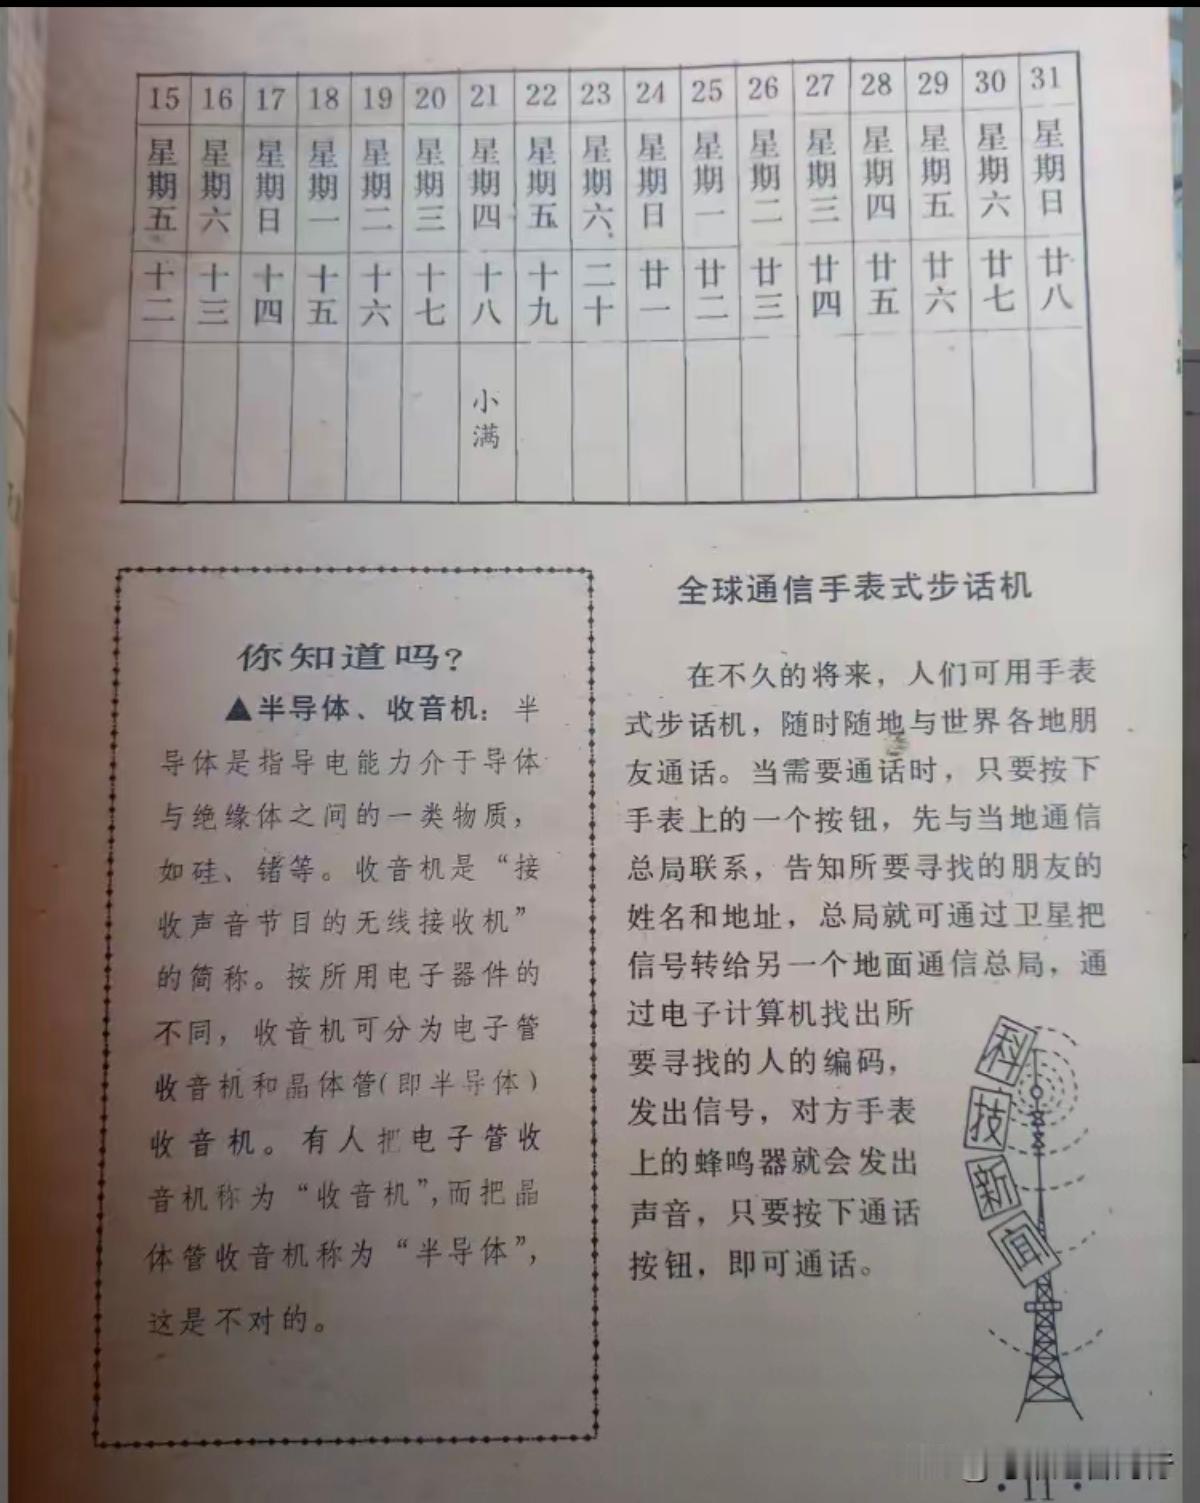 15 16 17 18 19 20 21 22 23 24 25 26 27 28 29 30 31
星期五 星期六 星期日 星期一 星期二 星期三 星期四 星期五 星期六 星期日 星期一 星期二 星期三 星期四 星期五 星期六 星期日
十二 十三 十四 十五 十六 十七 十八 十九 二十 廿一 廿二 廿三 廿四 廿五 廿六 廿七 廿八
小满
你知道吗?
▲半导体、收音机：半
导体是指导电能力介于导体
与绝缘体之间的一类物质，
如硅、锗等。收音机是“接
收声音节目的无线接收机”
的简称。按所用电子器件的
不同，收音机可分为电子管
收音机和晶体管(即半导体)
收音机。有人把电子管收
音机称为“收音机”,而把晶
体管收音机称为“半导体”,
这是不对的。
全球通信手表式步话机
在不久的将来，人们可用手表
式步话机，随时随地与世界各地朋
友通话。当需要通话时，只要按下
手表上的一个按钮，先与当地通信
总局联系，告知所要寻找的朋友的
姓名和地址，总局就可通过卫星把
信号转给另一个地面通信总局，通
过电子计算机找出所
要寻找的人的编码，
发出信号，对方手表
上的蜂鸣器就会发出
声音，只要按下通话
按钮，即可通话。
科技新闻
· 11 ·